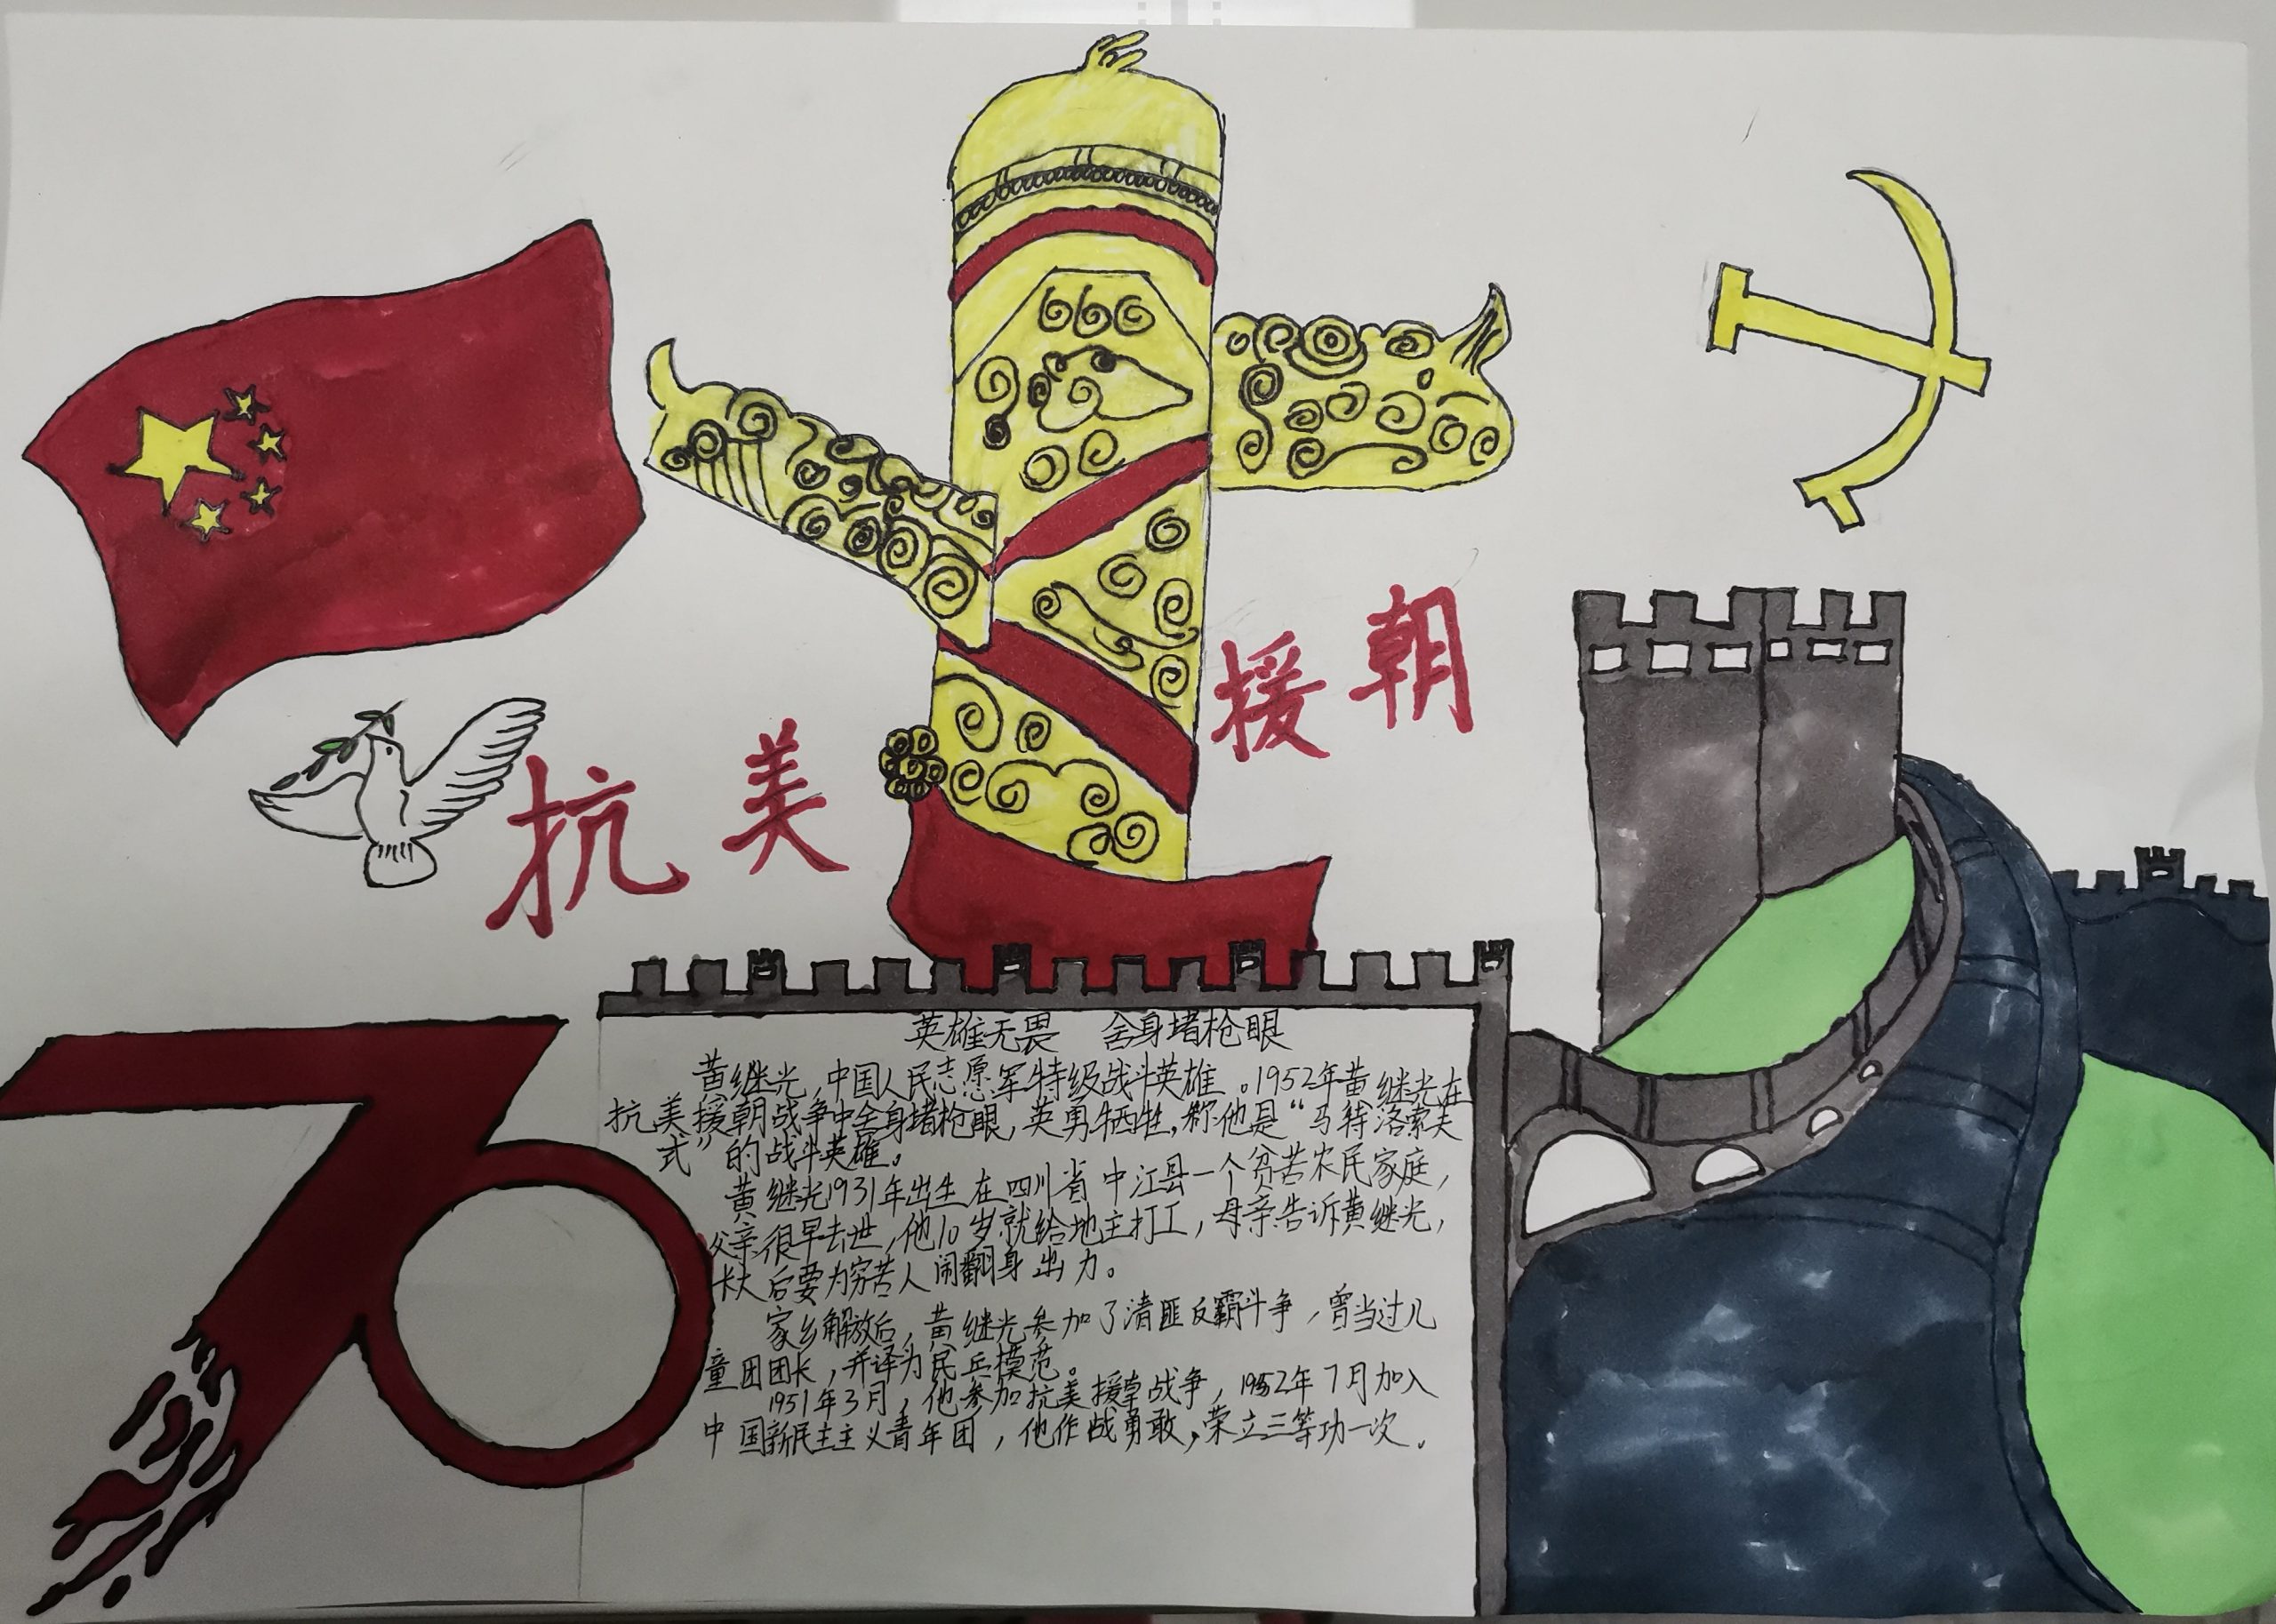 抗美援朝
70
英雄无畏 舍身堵枪眼
黄继光,中国人民志愿军特级战斗英雄。1952年黄继光在
抗美援朝战争中舍身堵枪眼,英勇牺牲,称他是“马特洛索夫
式”的战斗英雄。
黄继光1931年出生在四川省中江县一个贫苦农民家庭,
父亲很早去世,他10岁就给地主打工,母亲告诉黄继光,
长大后要为穷苦人闹翻身出力。
家乡解放后,黄继光参加了清匪反霸斗争,曾当过儿
童团团长,并译为民兵模范。
1951年3月,他参加抗美援战争,1952年7月加入
中国新民主主义青年团,他作战勇敢,荣立三等功一次.